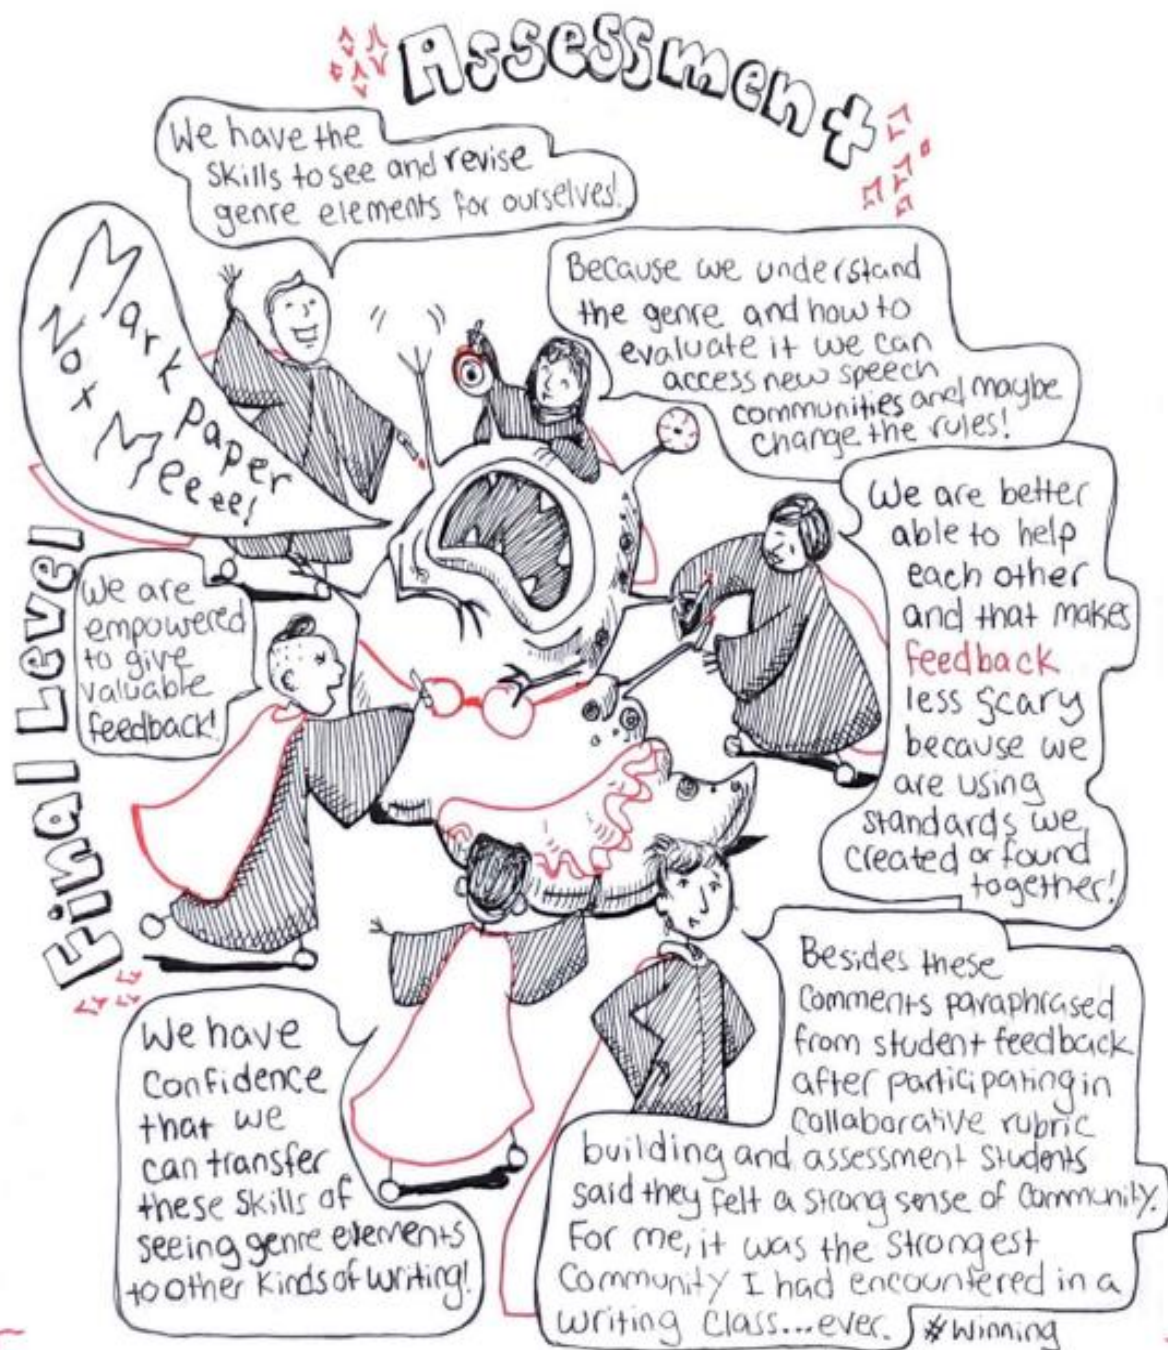 Assessment
We have the
skills to see and revise
genre elements for ourselves!
Mark paper
Not Meeee!
Because we understand
the genre and how to
evaluate it we can
access new speech
communities and maybe
change the rules!
We are better
able to help
each other
and that makes
feedback
less scary
because we
are using
standards we
created or found
together!
We are
empowered
to give
valuable
feedback!
Final Level
We have
confidence
that we
can transfer
these skills of
seeing genre elements
to other kinds of writing!
Besides these
comments paraphrased
from student feedback
after participating in
collaborative rubric
building and assessment students
said they felt a strong sense of community.
For me, it was the strongest
community I had encountered in a
writing class...ever.
#winning